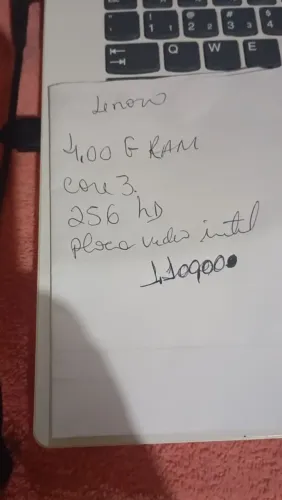 1 2 3 4
Q W E
Lenovo
4,00 G RAM
core 3.
256 hd
placa video intel
1.10900